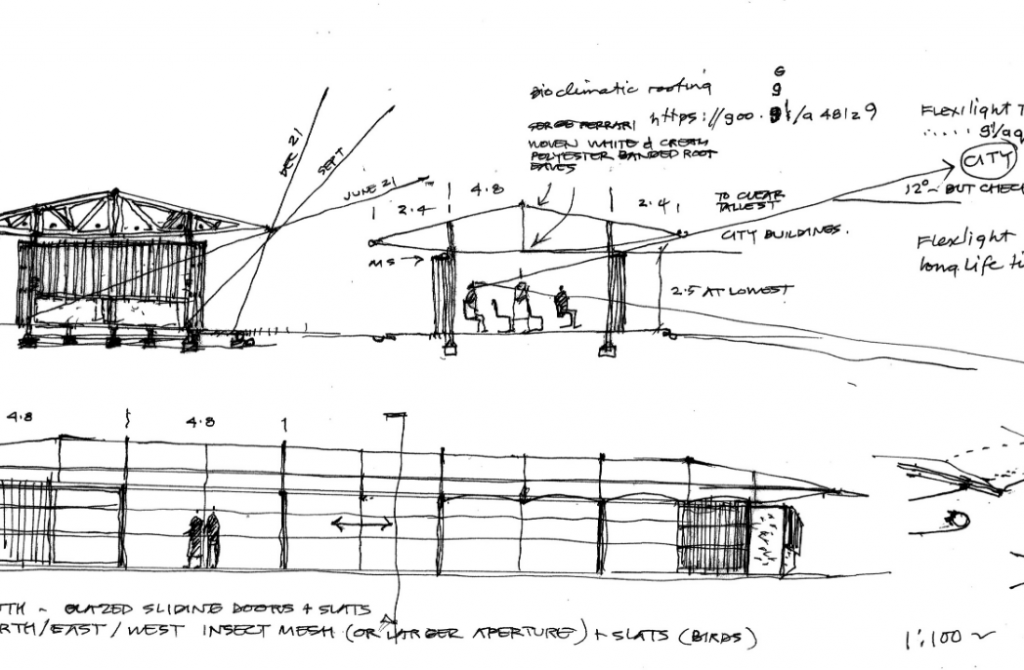 Bioclimatic roofing
https://goo.gl/a48129
G
g
SERGE FERRARI
WOVEN WHITE & CREAM
POLYESTER BANDED ROOF
EAVES
FLEXILIGHT
CITY
12° ~ BUT CHECK
Flexlight
long life
DEC 21
SEPT
JUNE 21
2.4
4.8
2.4
TO CLEAR
TALLEST
CITY BUILDINGS.
MS
2.5 AT LOWEST
4.8
4.8
UTH ~ GLAZED SLIDING DOORS + SLATS
RTH/EAST/WEST INSECT MESH (OR LARGER APERTURE) + SLATS (BIRDS)
1:100 ~